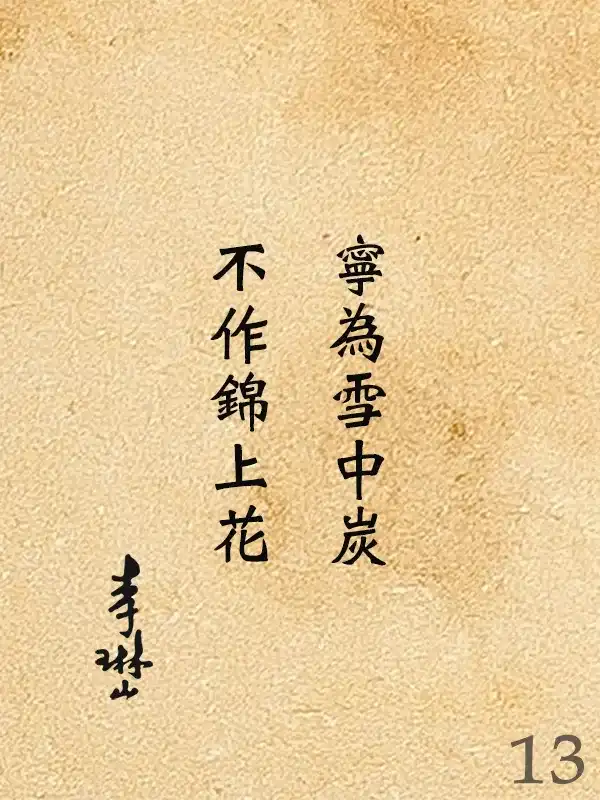 寧為雪中炭
不作錦上花
李琳山
13